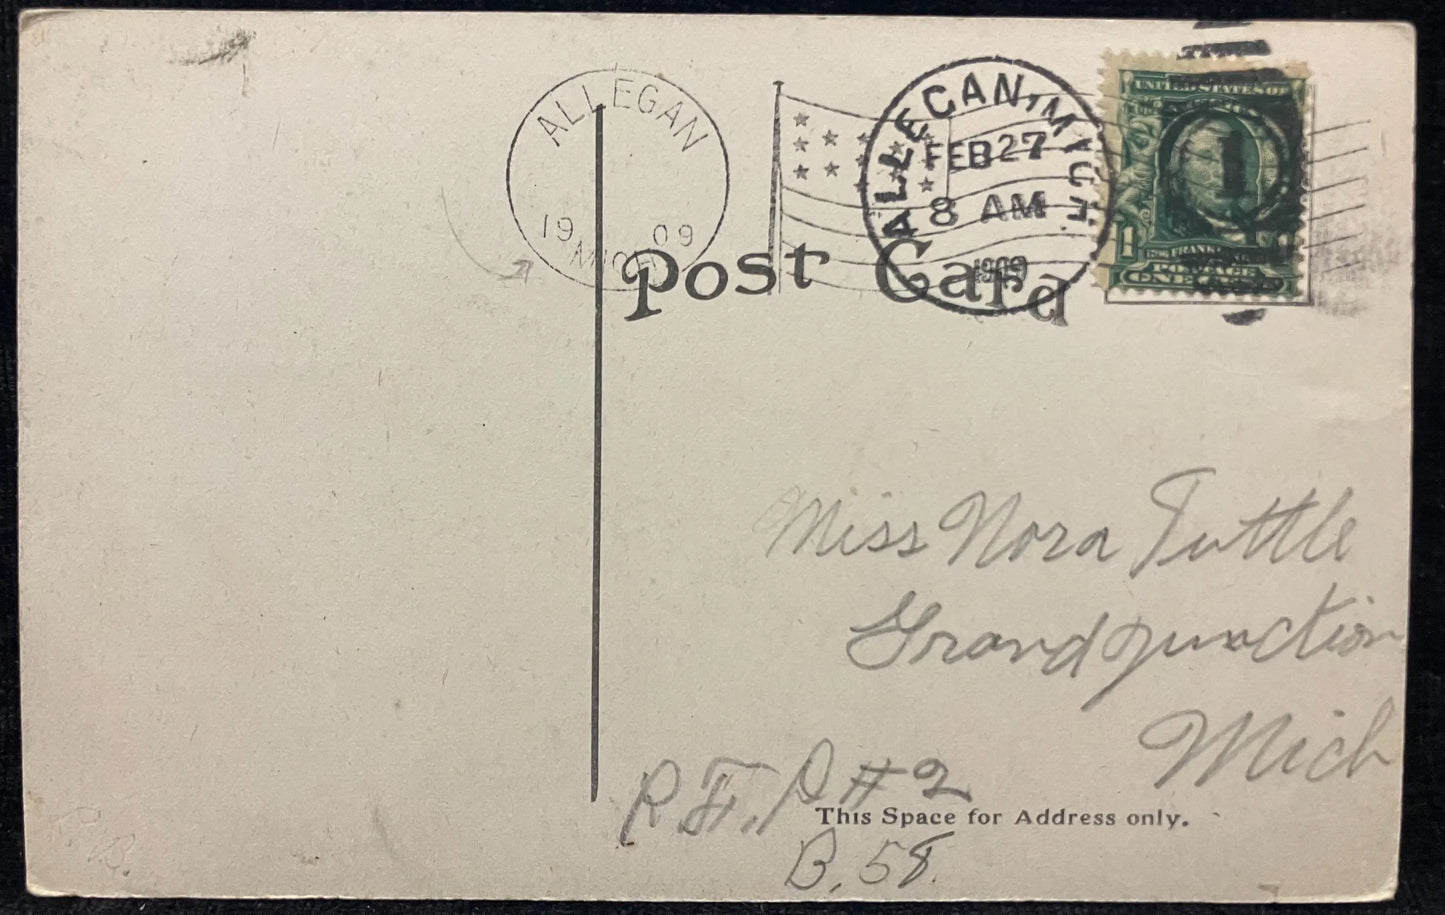 ALLEGAN
19 09
MICH
ALLEGAN, MICH.
FEB 27
8 AM
1909
UNITED STATES OF
1
FRANKLIN
POSTAGE
1 ONE
Post Card
Miss Nora Tuttle
Grand Junction
Mich
R. F. D #2
This Space for Address only.
B. 58.